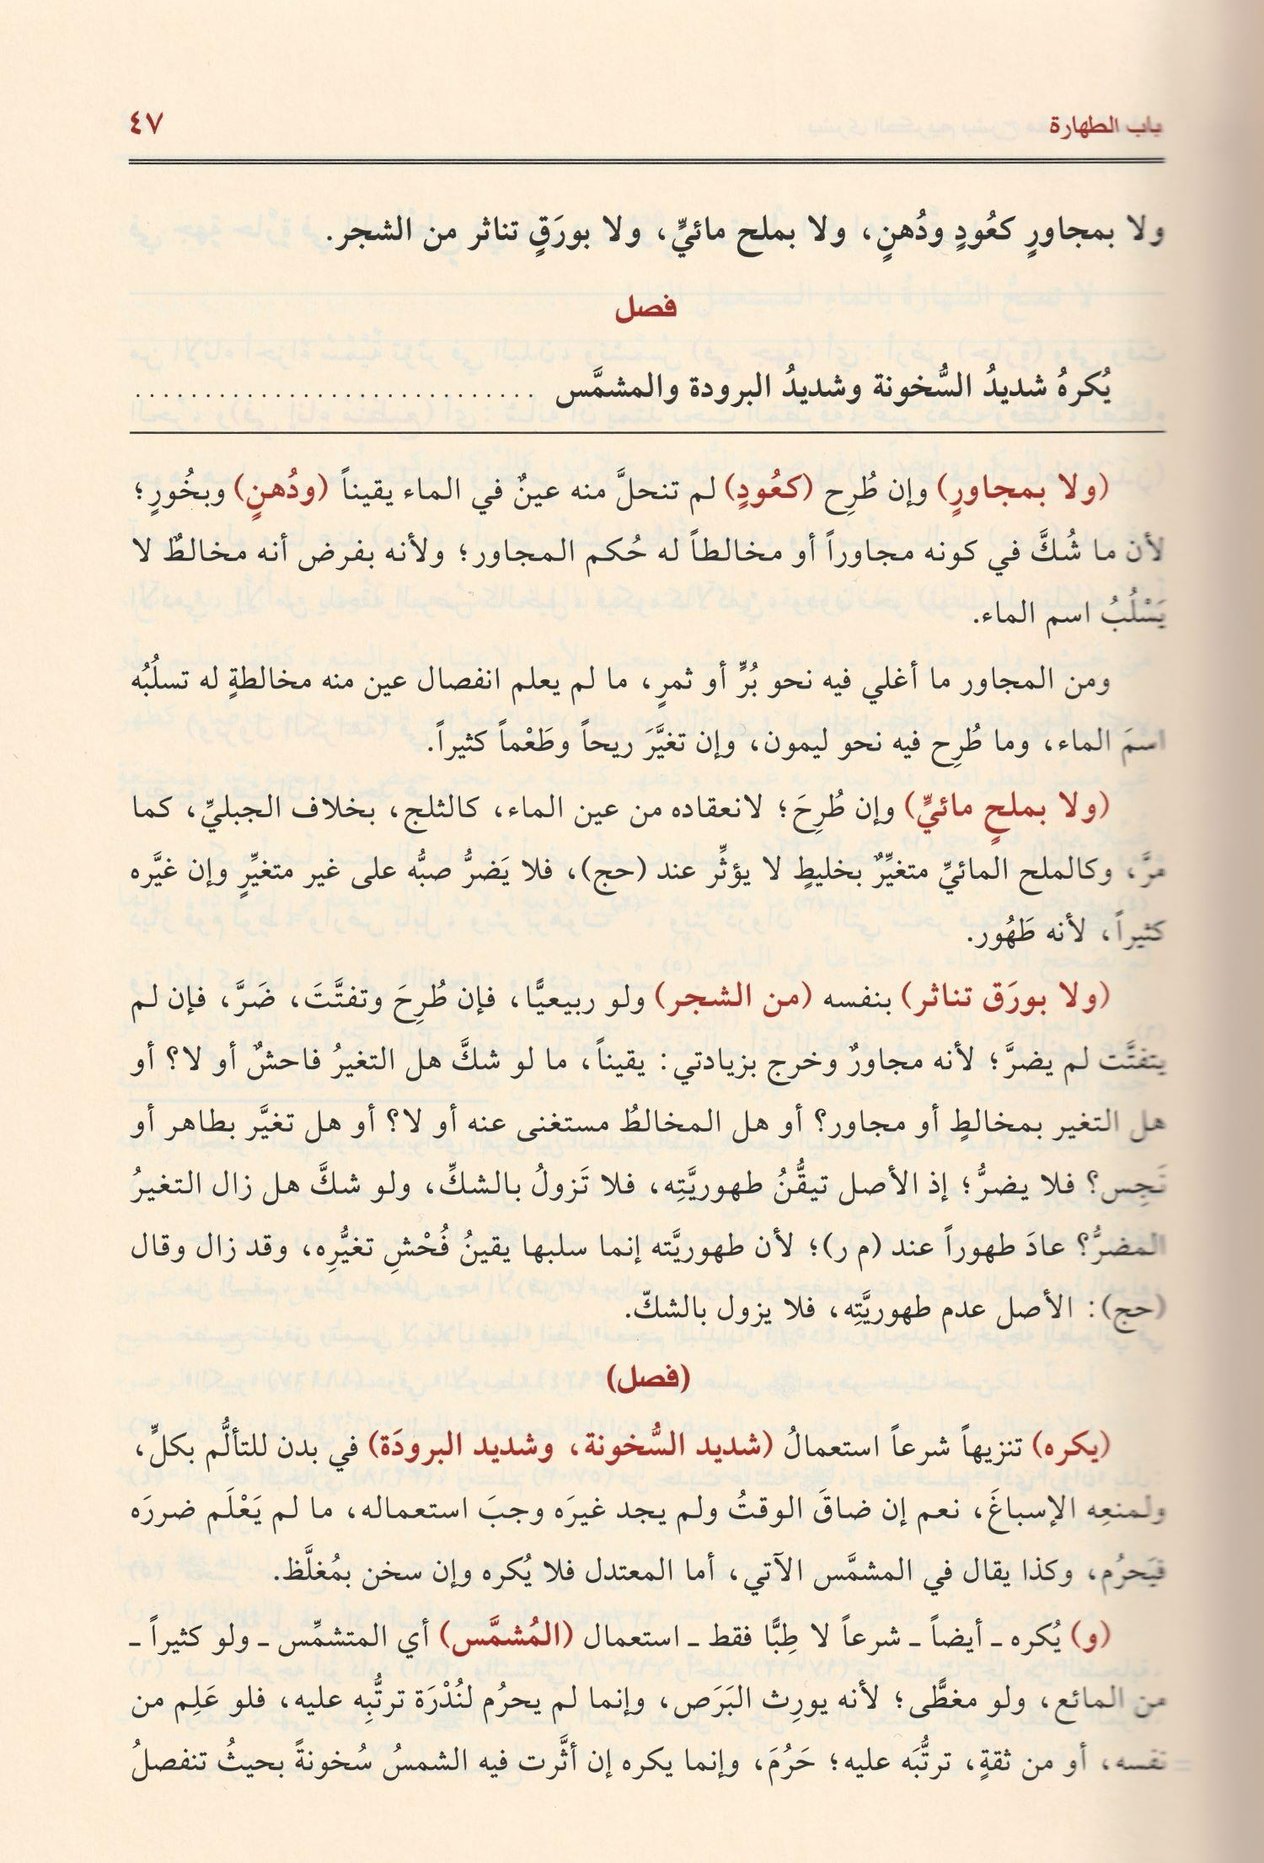 باب الطهارة ٤٧
ولا بمجاورٍ كعُودٍ ودُهنٍ، ولا بملح مائيٍّ، ولا بورَقٍ تناثر من الشجر.
فصل
يُكرهُ شديدُ السُّخونة وشديدُ البرودة والمشمَّس ............................
(ولا بمجاورٍ) وإن طُرِح (كعُودٍ) لم تنحلَّ منه عينٌ في الماء يقيناً (ودُهنٍ) وبخُورٍ؛
لأن ما شُكَّ في كونه مجاوراً أو مخالطاً له حُكم المجاور؛ ولأنه بفرض أنه مخالطٌ لا
يَسْلُبُ اسم الماء.
ومن المجاور ما أغلي فيه نحو بُرٍّ أو ثمرٍ، ما لم يعلم انفصال عين منه مخالطةٍ له تسلُبُه
اسمَ الماء، وما طُرِح فيه نحو ليمون، وإن تغيَّرَ ريحاً وطَعْماً كثيراً.
(ولا بملحٍ مائيٍّ) وإن طُرِحَ؛ لانعقاده من عين الماء، كالثلج، بخلاف الجبليِّ، كما
مرَّ، وكالملح المائيِّ متغيِّرٌ بخليطٍ لا يؤثِّر عند (حج)، فلا يَضرُّ صبُّه على غير متغيِّرٍ وإن غيَّره
كثيراً، لأنه طَهُور.
(ولا بورَق تناثر) بنفسه (من الشجر) ولو ربيعيًّا، فإن طُرِحَ وتفتَّتَ، ضَرَّ، فإن لم
يتفتَّت لم يضرَّ؛ لأنه مجاورٌ وخرج بزيادتي: يقيناً، ما لو شكَّ هل التغيرُ فاحشٌ أو لا؟ أو
هل التغير بمخالطٍ أو مجاور؟ أو هل المخالطُ مستغنى عنه أو لا؟ أو هل تغيَّر بطاهر أو
نَجِس؟ فلا يضرُّ؛ إذ الأصل تيقُّنُ طهوريَّتِه، فلا تَزولُ بالشكِّ، ولو شكَّ هل زال التغيرُ
المضرُّ؟ عادَ طهوراً عند (م ر)؛ لأن طهوريَّته إنما سلبها يقينُ فُحْشِ تغيُّرِه، وقد زال وقال
(حج): الأصل عدم طهوريَّتِه، فلا يزول بالشكّ.
(فصل)
(يكره) تنزيهاً شرعاً استعمالُ (شديد السُّخونة، وشديد البرودَة) في بدن للتألُّم بكلٍّ،
ولمنعِه الإسباغَ، نعم إن ضاقَ الوقتُ ولم يجد غيرَه وجبَ استعماله، ما لم يَعْلَم ضررَه
فيَحرُم، وكذا يقال في المشمَّس الآتي، أما المعتدل فلا يُكره وإن سخن بمُغلَّظ.
(و) يُكره ـ أيضاً ـ شرعاً لا طِبًّا فقط ـ استعمال (المُشمَّس) أي المتشمِّس ـ ولو كثيراً ـ
من المائع، ولو مغطَّى؛ لأنه يورِث البَرَص، وإنما لم يحرُم لنُدْرَة ترتُّبِه عليه، فلو عَلِم من
نفسه، أو من ثقةٍ، ترتُّبَه عليه؛ حَرُمَ، وإنما يكره إن أثَّرت فيه الشمسُ سُخونةً بحيثُ تنفصلُ